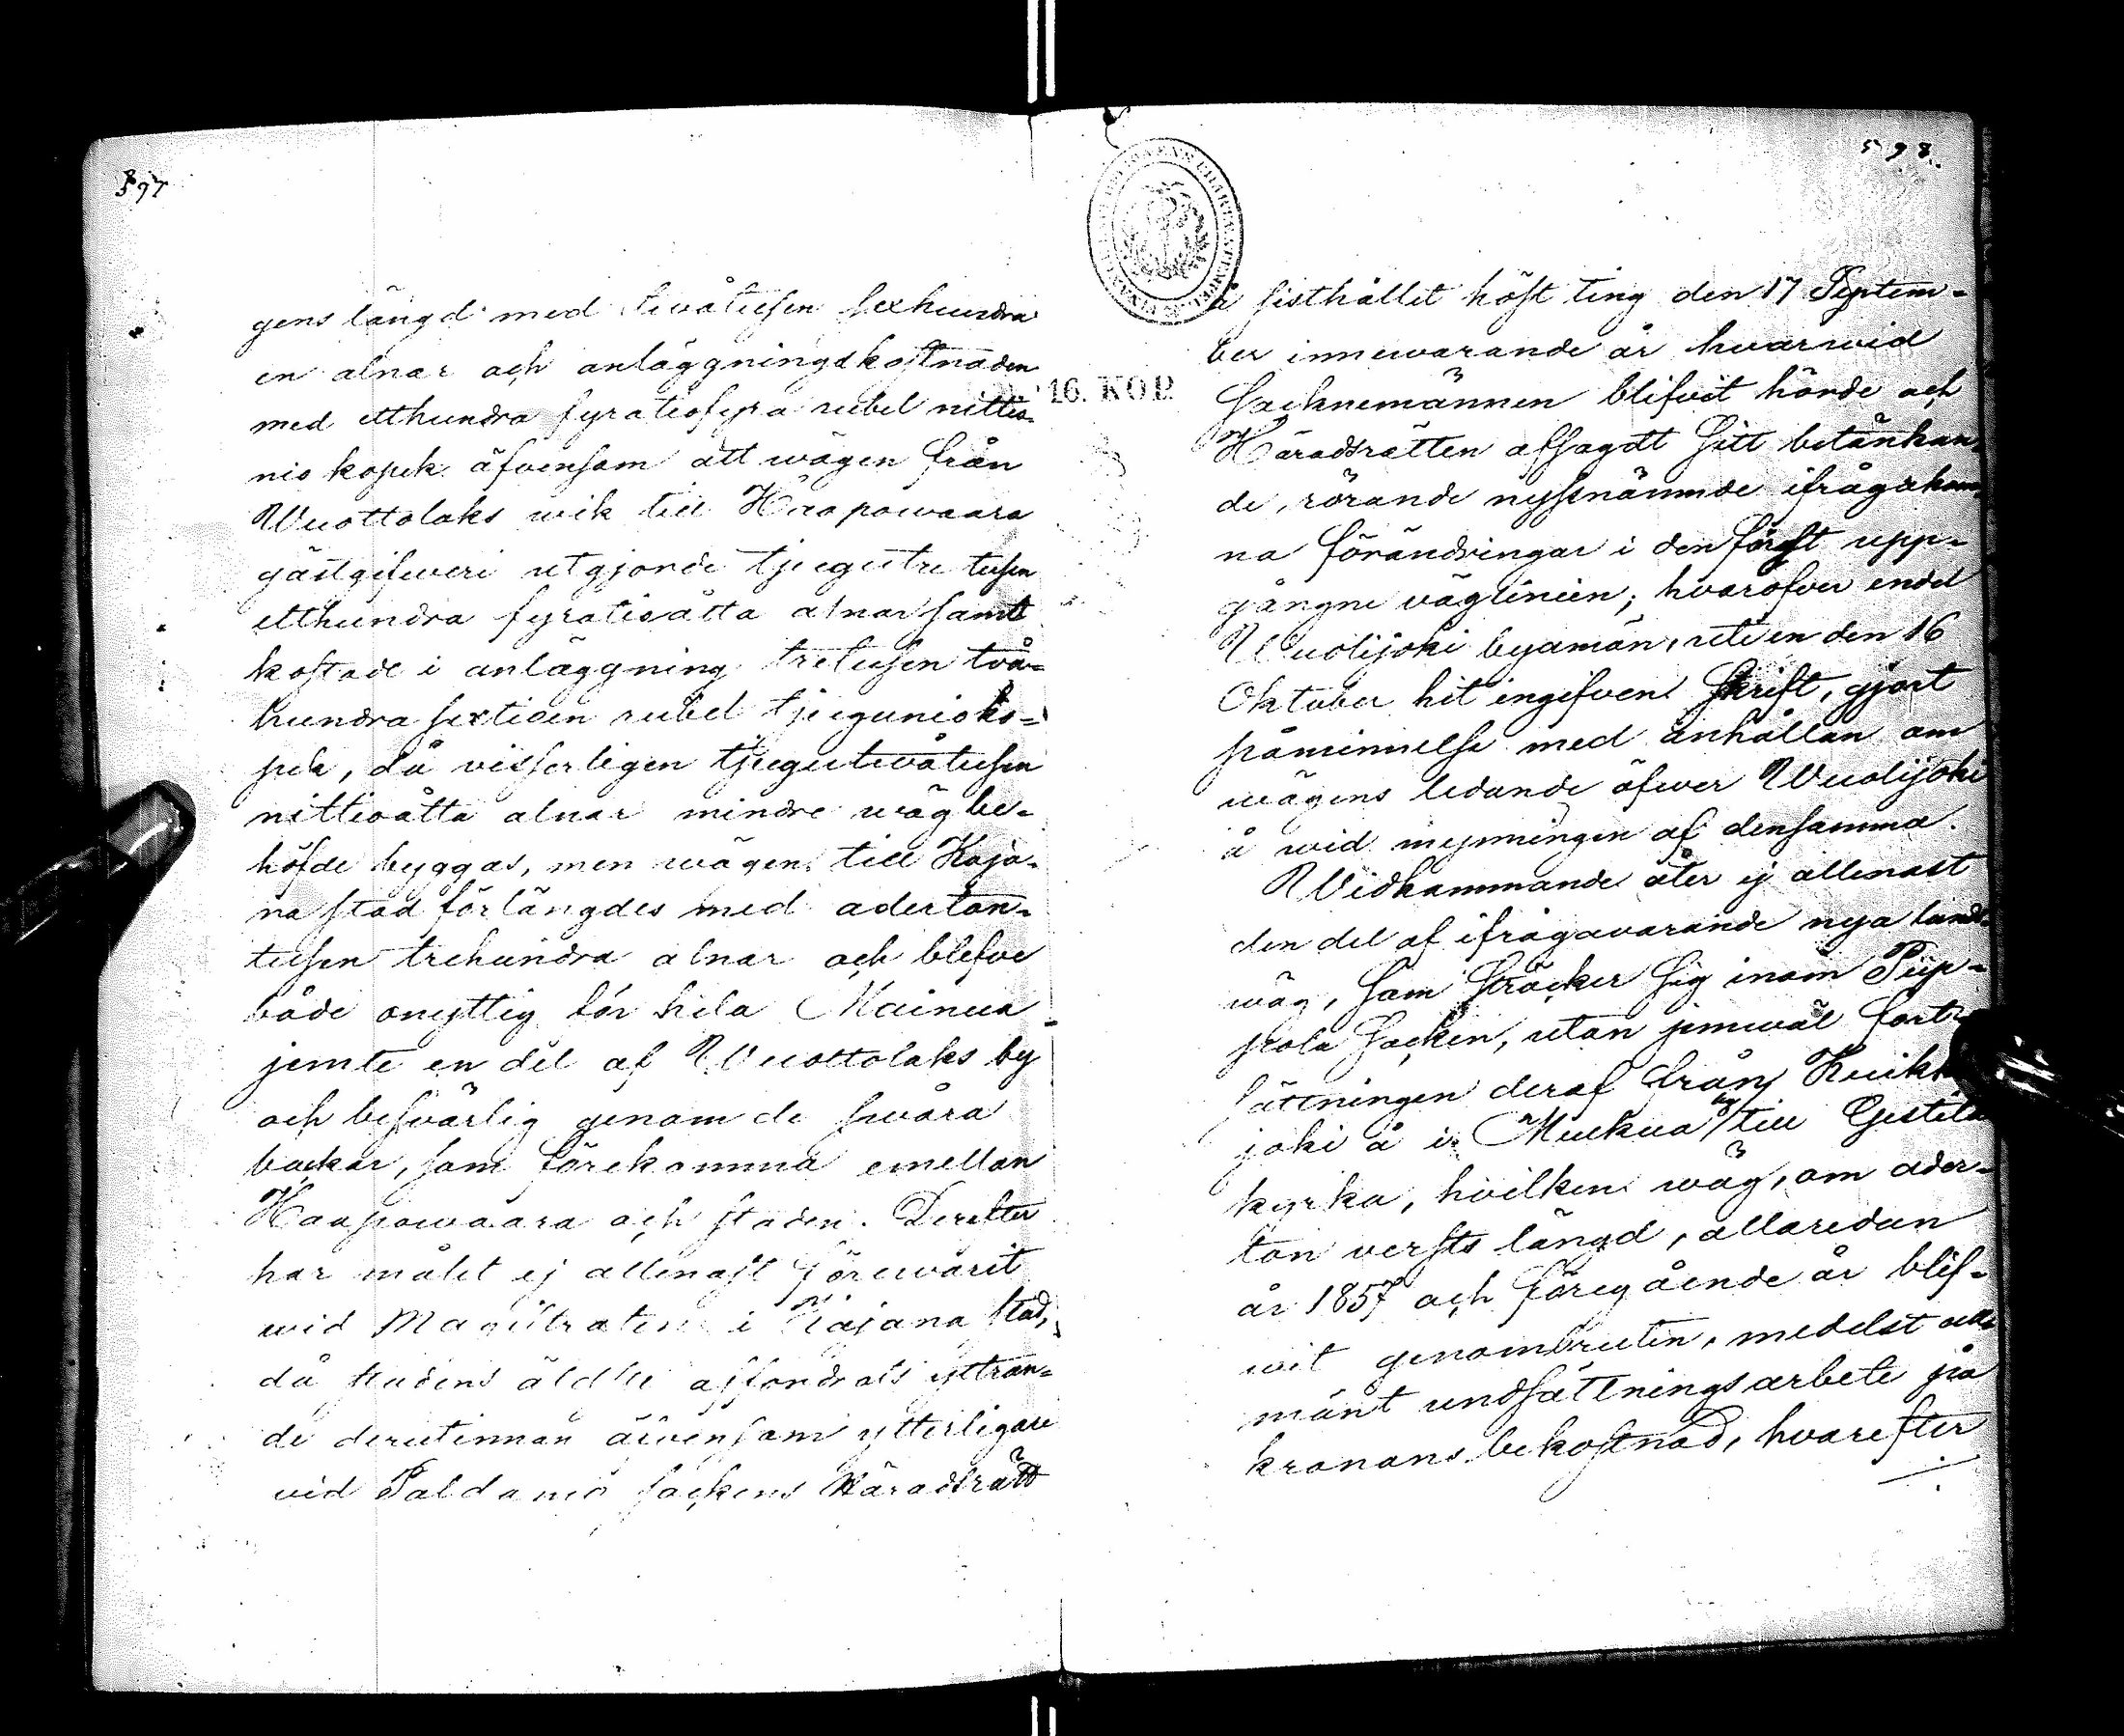 597
gens längd med tvåtusen sexhundra
en alnar och anläggningskostnaden
med etthundra fyratiofyra rubel nittio-
nio kopek äfvensom att wägen från
Wuottolaks wik till Haapowaara
gästgifveri utgjorde tjugutre tusen
etthundra fyratioåtta alnar samt
kostade i anläggning tretusen två-
hundra sextioen rubel tjugunio ko-
pek, då visserligen tjugutvåtusen
nittioåtta alnar mindre wäg be-
höfde byggas, men wägen till Kaja-
na stad förlängdes med aderton-
tusen trehundra alnar och blefve
både onyttig för hela Mainua
jemte en del af Wuottolaks by
och besvärlig genom de svåra
backar, som förekomma emellan
Haapowaara och staden. Derefter
har målet ej allenast förewarit
wid Magistraten i Kajana stad,
då stadens äldste affordrats yttran-
de derutinnan äfvensom ytterligare
vid Paldamo sockens Häradsrätt
16. KOP.
598.
å sisthållet höst ting den 17 Septem-
ber innewarande år hvarwid
Socknemännen blifvit hörde och
Häradsrätten afsagdt sitt betänkan-
de, rörande nyssnämnde ifrågakom-
na förändringar i den först upp-
gångne väglinien; hvaröfver endel
Wuolijoki byamän, uti en den 16
Oktober hit ingifven skrift, gjort
påminnelse med anhållan om
wägens ledande öfwer Wuolijoki
å wid mynningen af densamma.
Widkommande åter ej allenast
den del af ifrågavarande nya lands-
wäg, som sträcker sig inom Piip-
pola Socken, utan jemwäl fort-
sättningen deraf från
joki å i Muckua by till Gestilä
kyrka, hvilken wäg, om ader-
ton versts längd, allaredan
år 1857 och föregående år blif-
wit genombruten, medelst all-
mänt undsättningsarbete på
kronans bekostnad, hvarefter